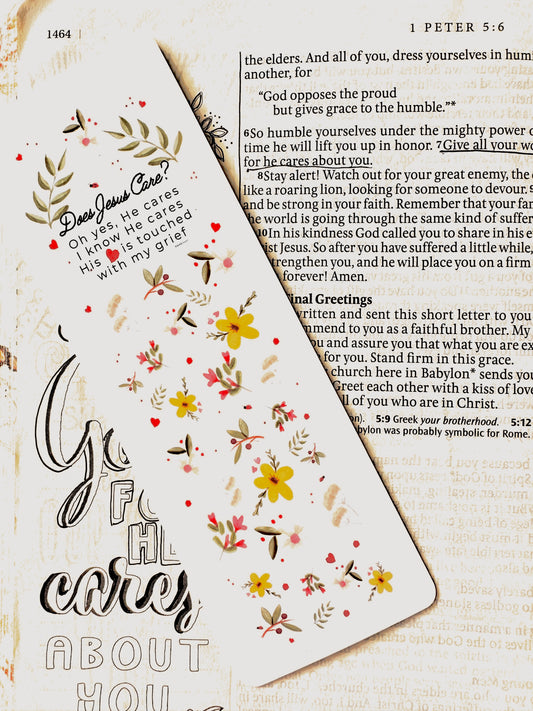 1464
1 PETER 5:6
the elders. And all of you, dress yourselves in
another, for
"God opposes the proud
but gives grace to the humble."*
6So humble yourselves under the mighty power
time he will lift you up in honor. 7Give all your
for he cares about you.
8Stay alert! Watch out for your great enemy, the
like a roaring lion, looking for someone to devour.
and be strong in your faith. Remember that your
the world is going through the same kind of
10In his kindness God called you to share in his
ist Jesus. So after you have suffered a little while,
strengthen you, and he will place you on a firm
forever! Amen.
inal Greetings
written and sent this short letter to you
mmend to you as a faithful brother. My
you and assure you that what you are
for you. Stand firm in this grace.
church here in Babylon* sends you
Greet each other with a kiss of love
ll of you who are in Christ.
5:9 Greek your brotherhood. 5:12
bylon was probably symbolic for Rome.
Does Jesus Care?
Oh yes, He cares
I know He cares
His is touched
with my grief
HE
cares
ABOUT
YOU